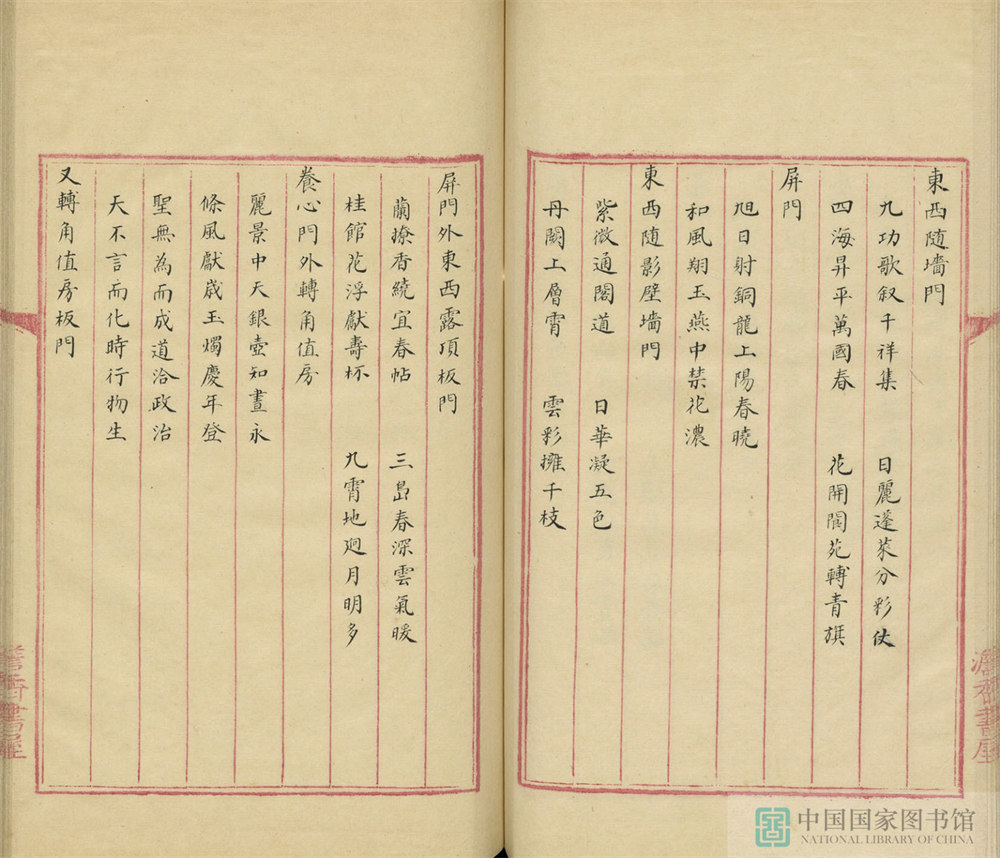 東西随墻門
九功歌叙千祥集　日麗蓬萊分彩仗
四海昇平萬國春　花開閬苑轉青旗
屏門
旭日射銅龍上陽春曉
和風翔玉燕中禁花濃
東西随影壁墻門
紫微通閣道　日華凝五色
丹闕上層霄　雲彩擁千枝
屏門外東西露頂板門
蘭撩香繞宜春帖　三島春深雲氣暖
桂館花浮獻壽杯　九霄地迥月明多
養心門外轉角值房
麗景中天銀壺知晝永
條風獻歲玉燭慶年登
聖無為而成道洽政治
天不言而化時行物生
又轉角值房板門
澹香書屋
中国国家图书馆
NATIONAL LIBRARY OF CHINA